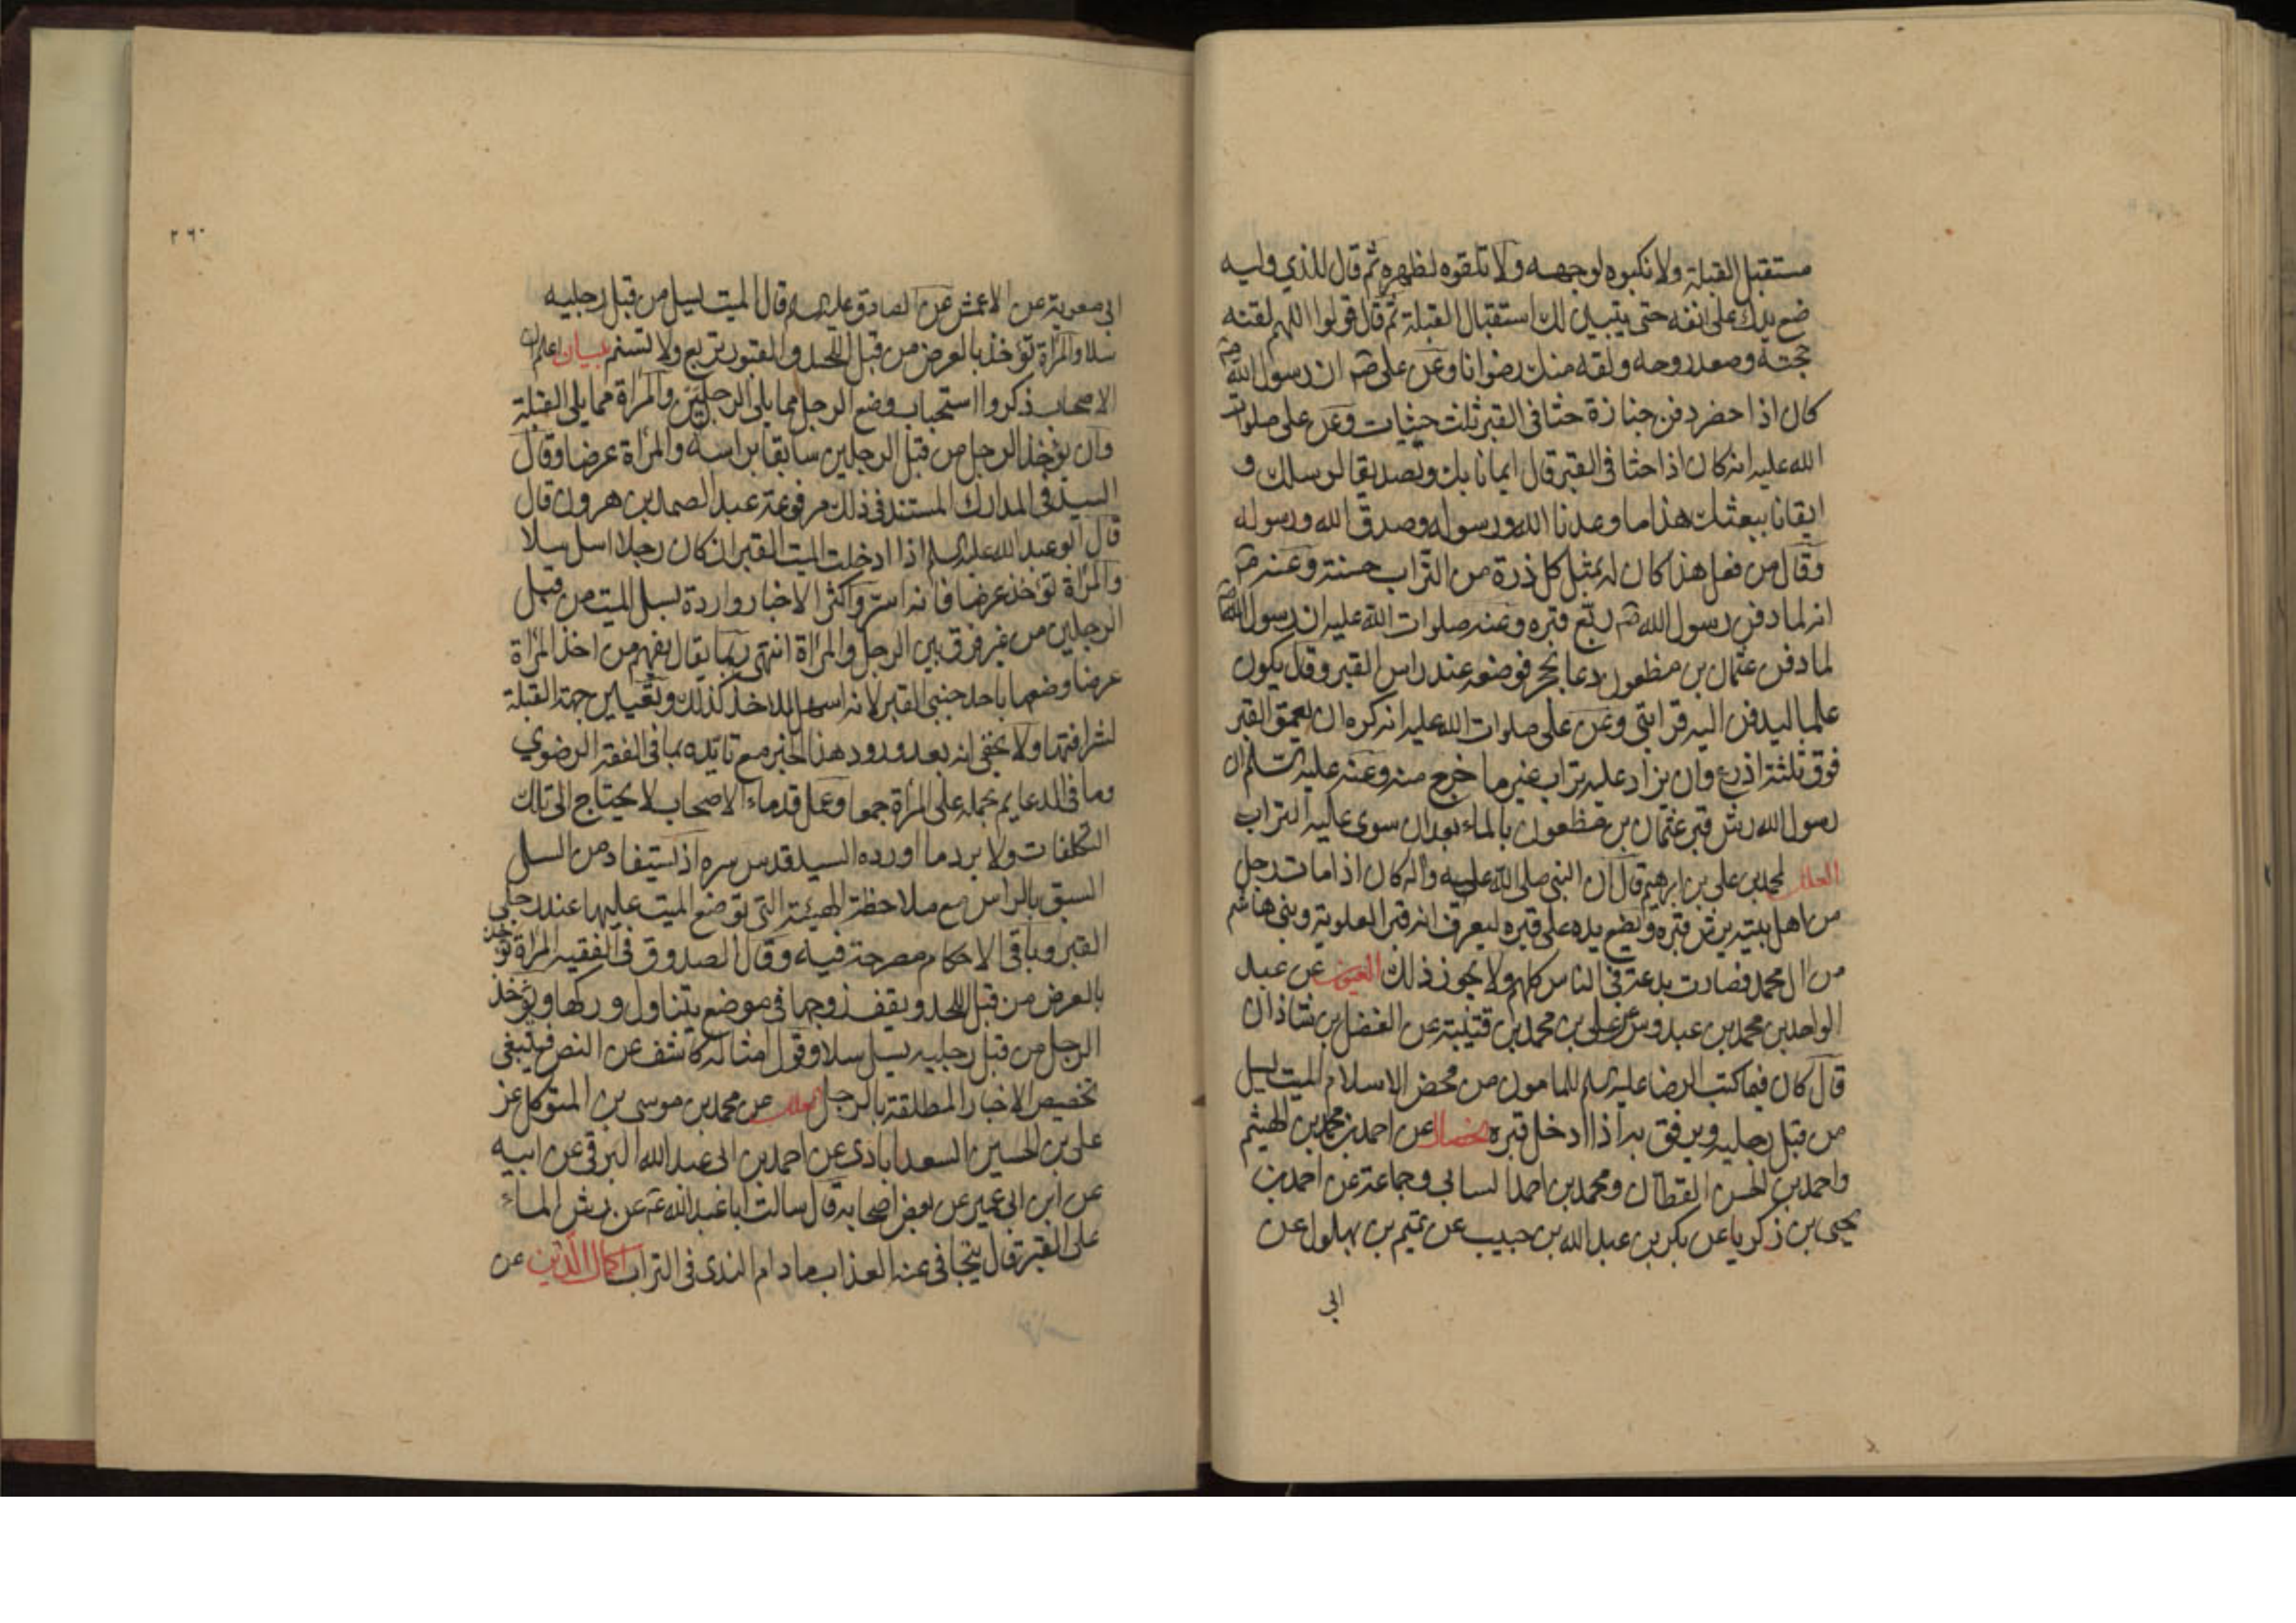 مستقبل القبلة ولا تكبوه لوجهه ولا تلقوه لظهره ثم قال للذي وليه
ضع يدك على انفه حتى يتبين لك استقبال القبلة ثم قال قولوا اللهم لقنه
حجته وصعد روحه ولقه منك رضوانا وعن علي ص ان رسول الله ص
كان اذا حضر دفن جنازة حثا في القبر ثلث حثيات وعن علي صلوات
الله عليه انه كان اذا حثا في القبر قال ايمانا بك وتصديقا لرسلك و
ايقانا ببعثك هذا ما وعدنا الله ورسوله وصدق الله ورسوله
وقال من فعل هذا كان له بمثل كل ذرة من التراب حسنة وعنه ص
انه لما دفن رسول الله ص ربع قبره وعنه صلوات الله عليه ان رسول الله ص
لما دفن عثمان بن مظعون دعا بحجر فوضعه عند راس القبر وقال يكون
علما ليدفن اليه قرابتي وعن علي صلوات الله عليه انه كره ان يعمق القبر
فوق ثلثة اذرع وان يزاد عليه تراب غير ما خرج منه وعنه عليه السلم ان
رسول الله رش قبر عثمان بن مظعون بالماء بعد ان سوى عليه التراب
العلل لمحمد بن علي بن ابرهيم قال ان النبي صلى الله عليه واله كان اذا مات رجل
من اهل بيته يرش قبره ويضع يده على قبره ليعرف انه قبر العلوية وبني هاشم
من ال محمد فصارت بدعة في الناس كلهم ولا يجوز ذلك العيون عن عبد
الواحد بن محمد بن عبدوس عن علي بن محمد بن قتيبة عن الفضل بن شاذان
قال كان فيما كتب الرضا عليه السلم للمامون من محض الاسلام الميت يسل
من قبل رجليه ويرفق به اذا ادخل قبره الخصال عن احمد بن محمد بن الهيثم
واحمد بن الحسن القطان ومحمد بن احمد السناني وجماعة عن احمد بن
يحيى بن زكريا عن بكر بن عبد الله بن حبيب عن تميم بن بهلول عن
ابي
٢٦٠
ابي معوية عن الاعمش عن الصادق عليه السلم قال الميت يسل من قبل رجليه
سلا والمراة تؤخذ بالعرض من قبل اللحد والقبور تربع ولا تسنم بيان اعلم ان
الاصحاب ذكروا استحباب وضع الرجل مما يلي الرجلين والمراة مما يلي القبلة
وان يؤخذ الرجل من قبل الرجلين سابقا براسه والمراة عرضا وقال
السيد في المدارك المستند في ذلك مرفوعة عبد الصمد بن هرون قال
قال ابو عبد الله عليه السلم اذا ادخلت الميت القبر ان كان رجلا سل سلا
والمراة تؤخذ عرضا فانه استر واكثر الاخبار واردة بسل الميت من قبل
الرجلين من غير فرق بين الرجل والمراة انتهى وربما يقال يفهم من اخذ المراة
عرضا وضعها باحد جنبي القبر لانه اسهل للاخذ كذلك وبتعيين جهة القبلة
لشرافتها ولا يخفى انه بعد ورود هذا الخبر مع تايده بما في الفقه الرضوي
وما في الدعايم بحمله على المراة جمعا وعمل قدماء الاصحاب لا يحتاج الى تلك
التكلفات ولا يرد ما اورده السيد قدس سره اذ يستفاد من السل
السبق بالراس مع ملاحظة الهيئة التي توضع الميت عليها عند رجلي
القبر وباقي الاحكام مصرحة فيه وقال الصدوق في الفقيه المراة تؤخذ
بالعرض من قبل اللحد ويقف زوجها في موضع يتناول وركها ويؤخذ
الرجل من قبل رجليه يسل سلا وقول امثاله كاشف عن النص فينبغي
تخصيص الاخبار المطلقة بالرجل العلل عن محمد بن موسى بن المتوكل عن
علي بن الحسين السعدابادي عن احمد بن ابي عبد الله البرقي عن ابيه
عن ابن ابي عمير عن بعض اصحابه قال سالت ابا عبد الله ع عن رش الماء
على القبر قال يتجافى عنه العذاب ما دام الندى في التراب اكمال الدين عن